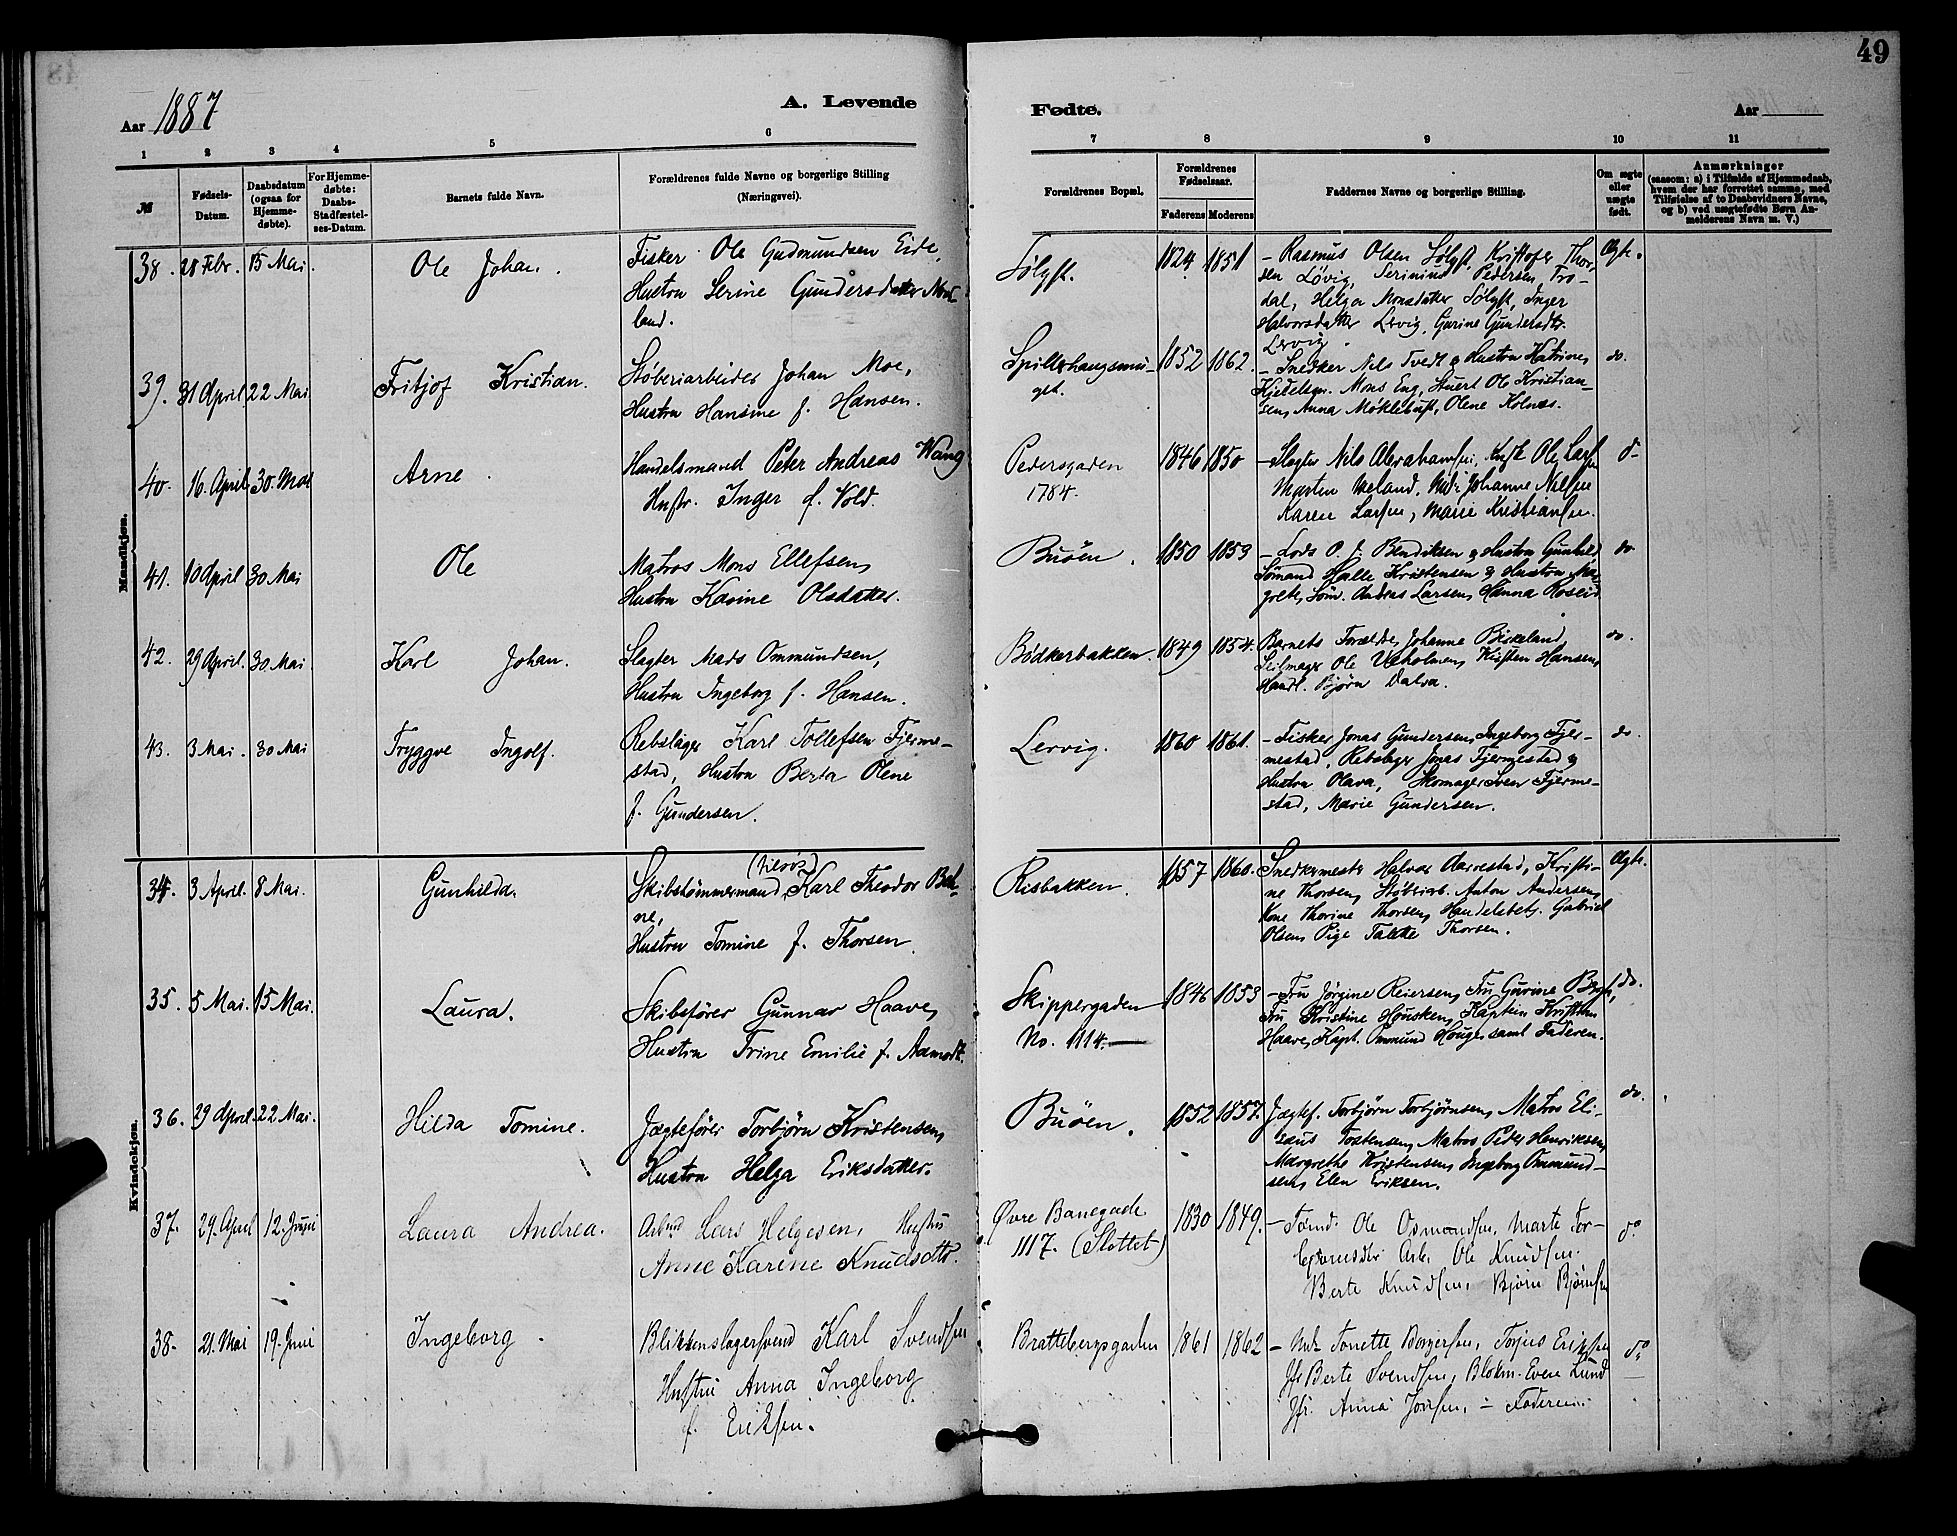 49
Aar 1887
A. Levende
Fødte.
Aar
1 2 3 4 5 6 7 8 9 10 11
№
Fødsels-
Datum.
Daabsdatum
(ogsaa for
Hjemme-
døbte).
For Hjemme-
døbte:
Daabs-
Stadfæstel-
ses-Datum.
Barnets fulde Navn.
Forældrenes fulde Navne og borgerlige Stilling
(Næringsvei).
Forældrenes Bopæl.
Forældrenes
Fødselsaar.
Faderens Moderens
Faddernes Navne og borgerlige Stilling.
Om ægte
eller
uægte
født.
Anmærkninger
(saasom: a) i Tilfælde af Hjemmedaab,
hvem der har forrettet samme, med
Tilføielse af to Daabsvidners Navne,
og b) ved uægtefødte Børn An-
melderens Navn m. V.)
Mandkjøn.
38. 28 Febr. 15 Mai.
Ole Johan.
Fisker Ole Gudmundsen Eide,
Hustru Serine Gundersdatter
land.
Sølyst.
1824 1851
- Rasmus Olsen Sølyst, Kristofer Thor-
sen Løvig, Pedersen Tro-
dal, Helga Monsdatter Sølyst, Inger
Halvorsdatter Lervig, Gurine Gundersdtr.
Lervig.
Ægte.
39. 31 April 22 Mai
Fritjof Kristian.
Støberiarbeider Johan Moe,
Hustru Hansine f. Hansen.
get.
1852 1862.
- Snedker Nils Tvedt & Hustru Katrine,
Mons Eng, Stuert Ole Kristian-
sen, Anna Møklebust, Olene Kolnes.
do.
40. 16. April 30. Mai
Arne.
Handelsmand Peter Andreas Wang
Hustr. Inger f. Vold.
Pedersgaden
1784.
1846 1850
- Slagter Nils Abrahamsen, Ole Larsen
Martin Meland, Mad: Johanne Nilsen
Karen Larsen, Marie Kristiansen.
do
41. 10 April 30 Mai
Ole
Matros Mons Ellefsen,
Hustru Karine Olsdatter.
Buøen.
1850 1859
- Lods O. J. Bendiksen & Hustru Gunhild
Sømand Halle Kristensen & Hustru Mar-
grete, Søm. Anders Larsen, Hanna Roseid
do
42. 29 April. 30 Mai.
Karl Johan.
Slagter Mads Ommundsen,
Hustru Ingeborg f. Hansen.
Bødkerbakken.
1849 1854.
Barnets Forældre, Johanne Birkeland,
Seilmager Ole Vaholmen, Kirsten Hansen,
Handl. Bjørn Dalva.
do.
43. 3 Mai. 30 Mai
Tryggve Ingolf.
Rebslager Karl Tollefsen Fjerme-
stad, Hustru Berta Olene
f. Gundersen.
Lervig.
1860 1861.
- Fisker Jonas Gundersen, Ingeborg Fjer-
mestad, Rebslager Jonas Fjermestad &
Hustru Olava, Skomager Sven Fjerme-
stad, Marie Gundersen.
do.
Kvindekjøn.
34. 3 April. 8 Mai.
Gunhilda.
(tilsøs)
Skibstømmermand, Karl Theodor
ne,
Hustru Tomine f. Thorsen.
Risbakken.
1857 1860.
Snedkermester Halvor Aarrestad, Kristi-
ne Thorsen, Støberiarb. Anton Andersen,
Kone Thorine Thorsen, Handelsbetj. Gabriel
Olsen, Pige Talette Thorsen.
Ægte.
35. 5 Mai. 15 Mai.
Laura.
Skibsfører Gunnar Haave,
Hustru Trine Emilie f. Aamodt.
Skippergaden
No. 1114.
1846 1853
- Fru Jørgine Reiersen, Fru Gurine
Fru Kristine Housken, Kaptein Kristen
Haave, Kapt. Ommund Houge samt Faderen.
do.
36. 29 April. 22 Mai.
Hilda Tomine.
Jægtefører Torbjørn Kristensen,
Hustru Helga Eriksdatter.
Buøen.
1852 1857.
Jægtef. Torbjørn Torbjørnsen, Matros Eli-
sæus Tostensen, Matros Peder Henriksen,
Margrethe Kristensen, Ingeborg Ommund-
sen, Elen Eriksen.
do.
37. 29. April 12. Juni
Laura Andrea.
Arbmd Lars Helgesen, Hustru
Anne Karine Knudsdtr.
Øvre Banegade
1117. (Slottet)
1830 1849.
- Tømd. Ole Osmundsen, Marte Tor-
Arb. Ole Knudsen.
Berte Knudsen, Bjørn Bjørnsen
do
38. 21. Mai 19. Juni
Ingeborg.
Blikkenslagersvend Karl Svendsen
Hustru Anna Ingeborg
f. Eriksen.
Brattebergsgaden
1861 1862
- Md: Tonette Borgersen, Torjus Eriksen
Jfr Berte Svendsen, Blokm. Even Lund
Jfr. Anna - Faderen.
do